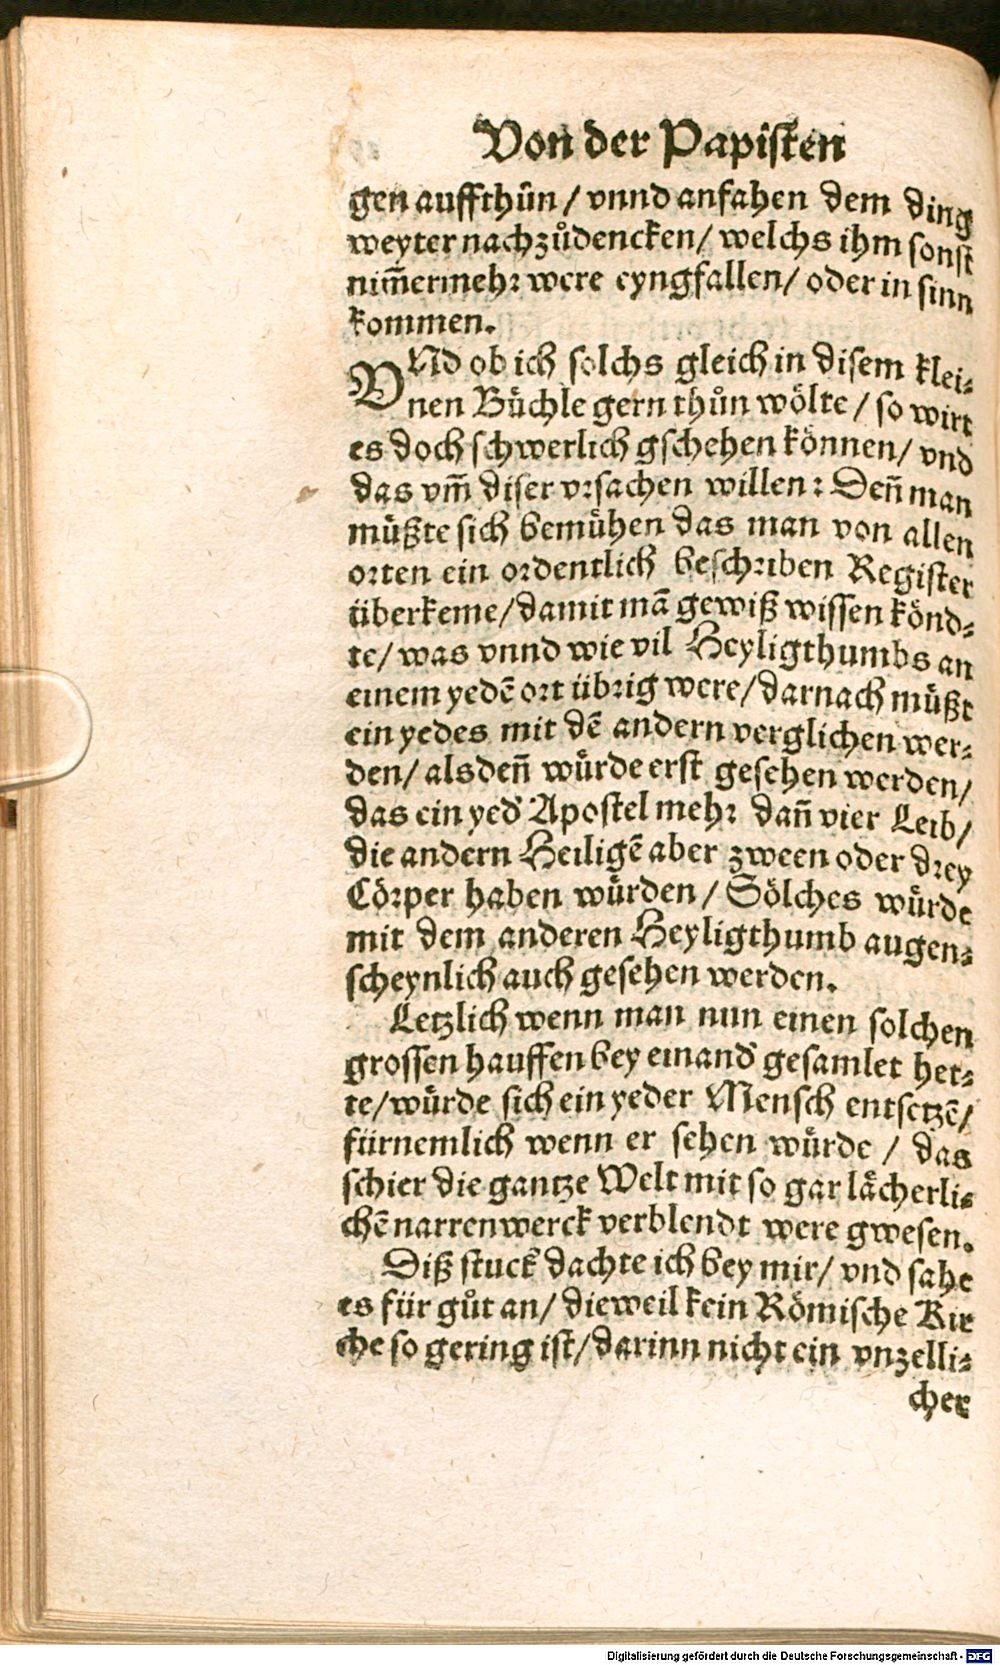 Von der Papisten
gen auffthůn / vnnd anfahen dem ding
weyter nachzůdencken / welchs ihm sonst
nim̃ermehr were eyngfallen / oder in sinn
kommen.
VNd ob ich solchs gleich in disem klei⸗
nen Büchle gern thůn wölte / so wirt
es doch schwerlich gschehen können / vnd
das vm̃ diser vrsachen willen: Deñ man
müßte sich bemühen das man von allen
orten ein ordentlich beschriben Register
überkeme / damit mã gewiß wissen könd⸗
te / was vnnd wie vil Heyligthumbs an
einem yedẽ ort übrig were / darnach müßt
ein yedes mit dẽ andern verglichen wer⸗
den / alsdeñ würde erst gesehen werden /
das ein yed̕ Apostel mehr dañ vier Leib /
die andern Heiligẽ aber zween oder drey
Cörper haben würden / Sölches würde
mit dem anderen Heyligthumb augen⸗
scheynlich auch gesehen werden.
Letzlich wenn man nun einen solchen
grossen hauffen bey einand̕ gesamlet het⸗
te / würde sich ein yeder Mensch entsetzẽ /
fürnemlich wenn er sehen würde / das
schier die gantze Welt mit so gar lächerli⸗
chẽ narrenwerck verblendt were gwesen.
Diß stuck dachte ich bey mir / vnd sahe
es für gůt an / dieweil kein Römische Kir
che so gering ist / darinn nicht ein vnzelli⸗
cher
Digitalisierung gefördert durch die Deutsche Forschungsgemeinschaft - DFG